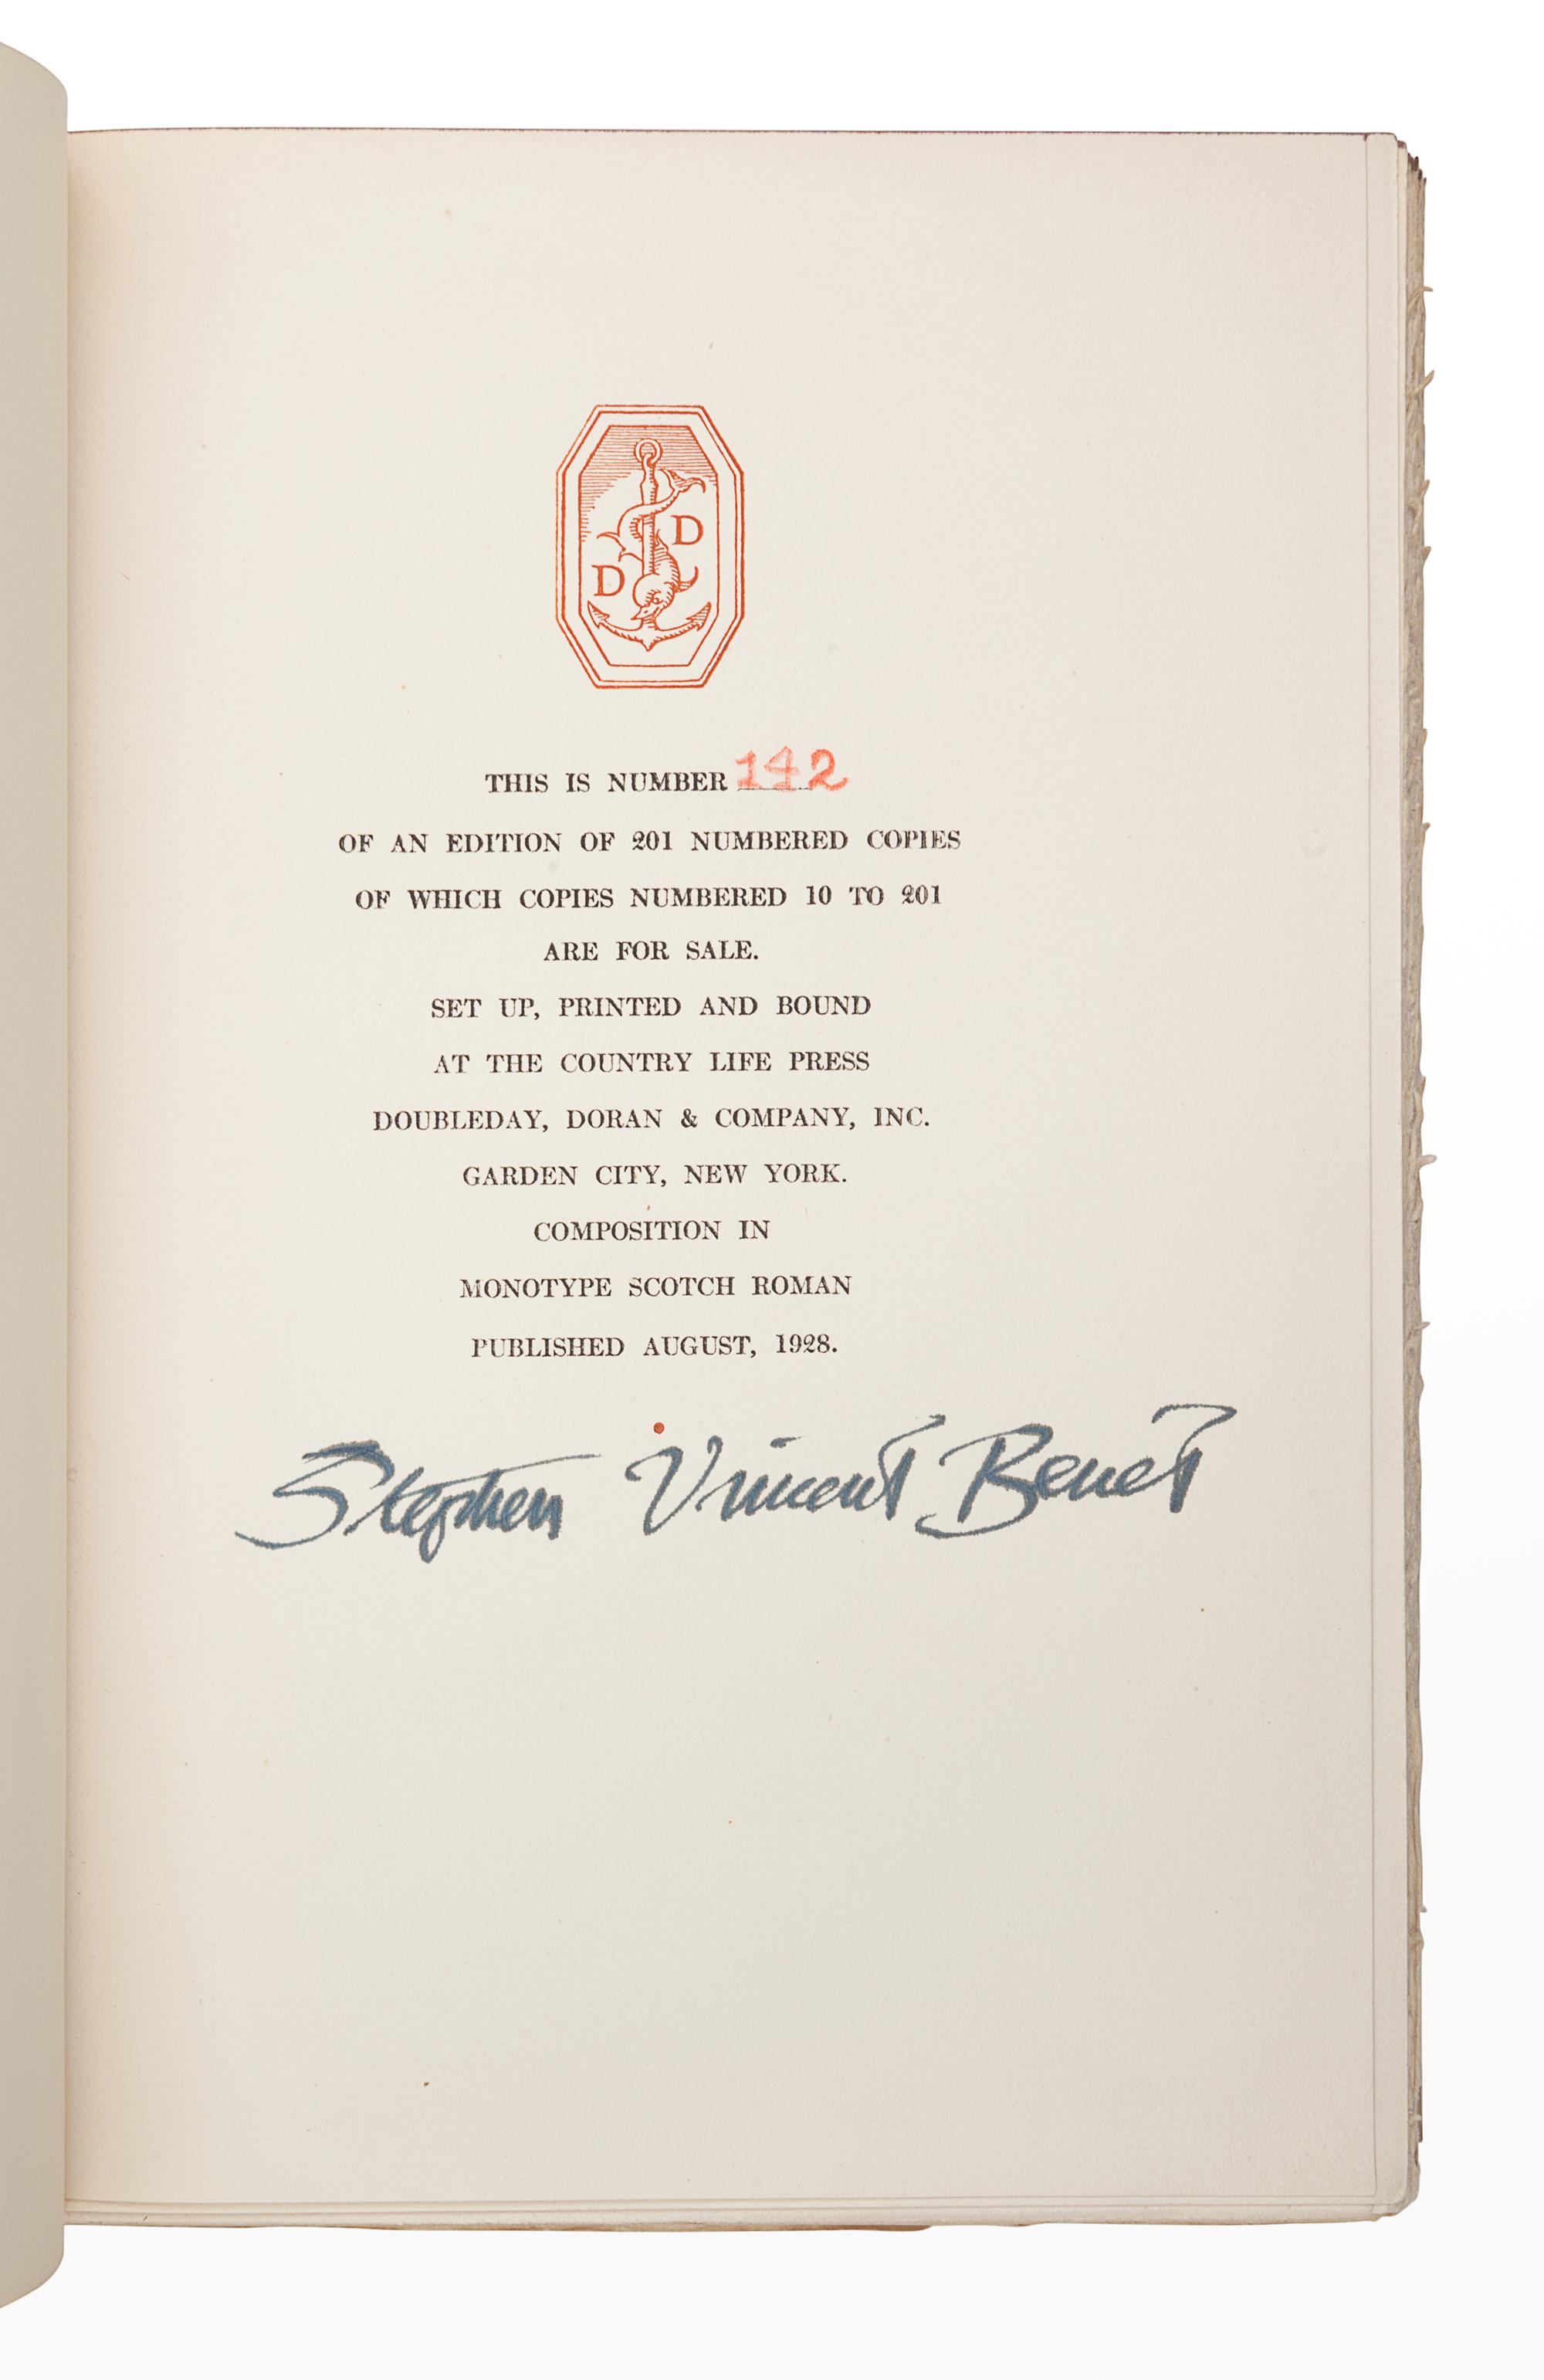 D
D
THIS IS NUMBER 142
OF AN EDITION OF 201 NUMBERED COPIES
OF WHICH COPIES NUMBERED 10 TO 201
ARE FOR SALE.
SET UP, PRINTED AND BOUND
AT THE COUNTRY LIFE PRESS
DOUBLEDAY, DORAN & COMPANY, INC.
GARDEN CITY, NEW YORK.
COMPOSITION IN
MONOTYPE SCOTCH ROMAN
PUBLISHED AUGUST, 1928.
Stephen Vincent Benét